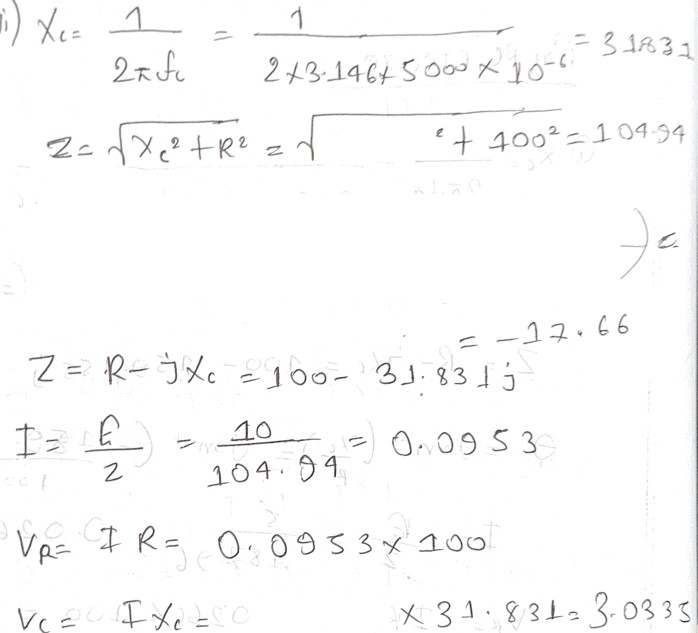 i) Xc = 1 / 2πfc = 1 / 2×3.146×5000×10⁻⁶ = 31831
Z = √Xc² + R² = √ ² + 100² = 104.94
= -17.66
Z = R - jXc = 100 - 31.831j
I = E / Z = 10 / 104.94 = 0.0953
VR = IR = 0.0953 × 100
Vc = IXc = × 31.831 = 3.0335